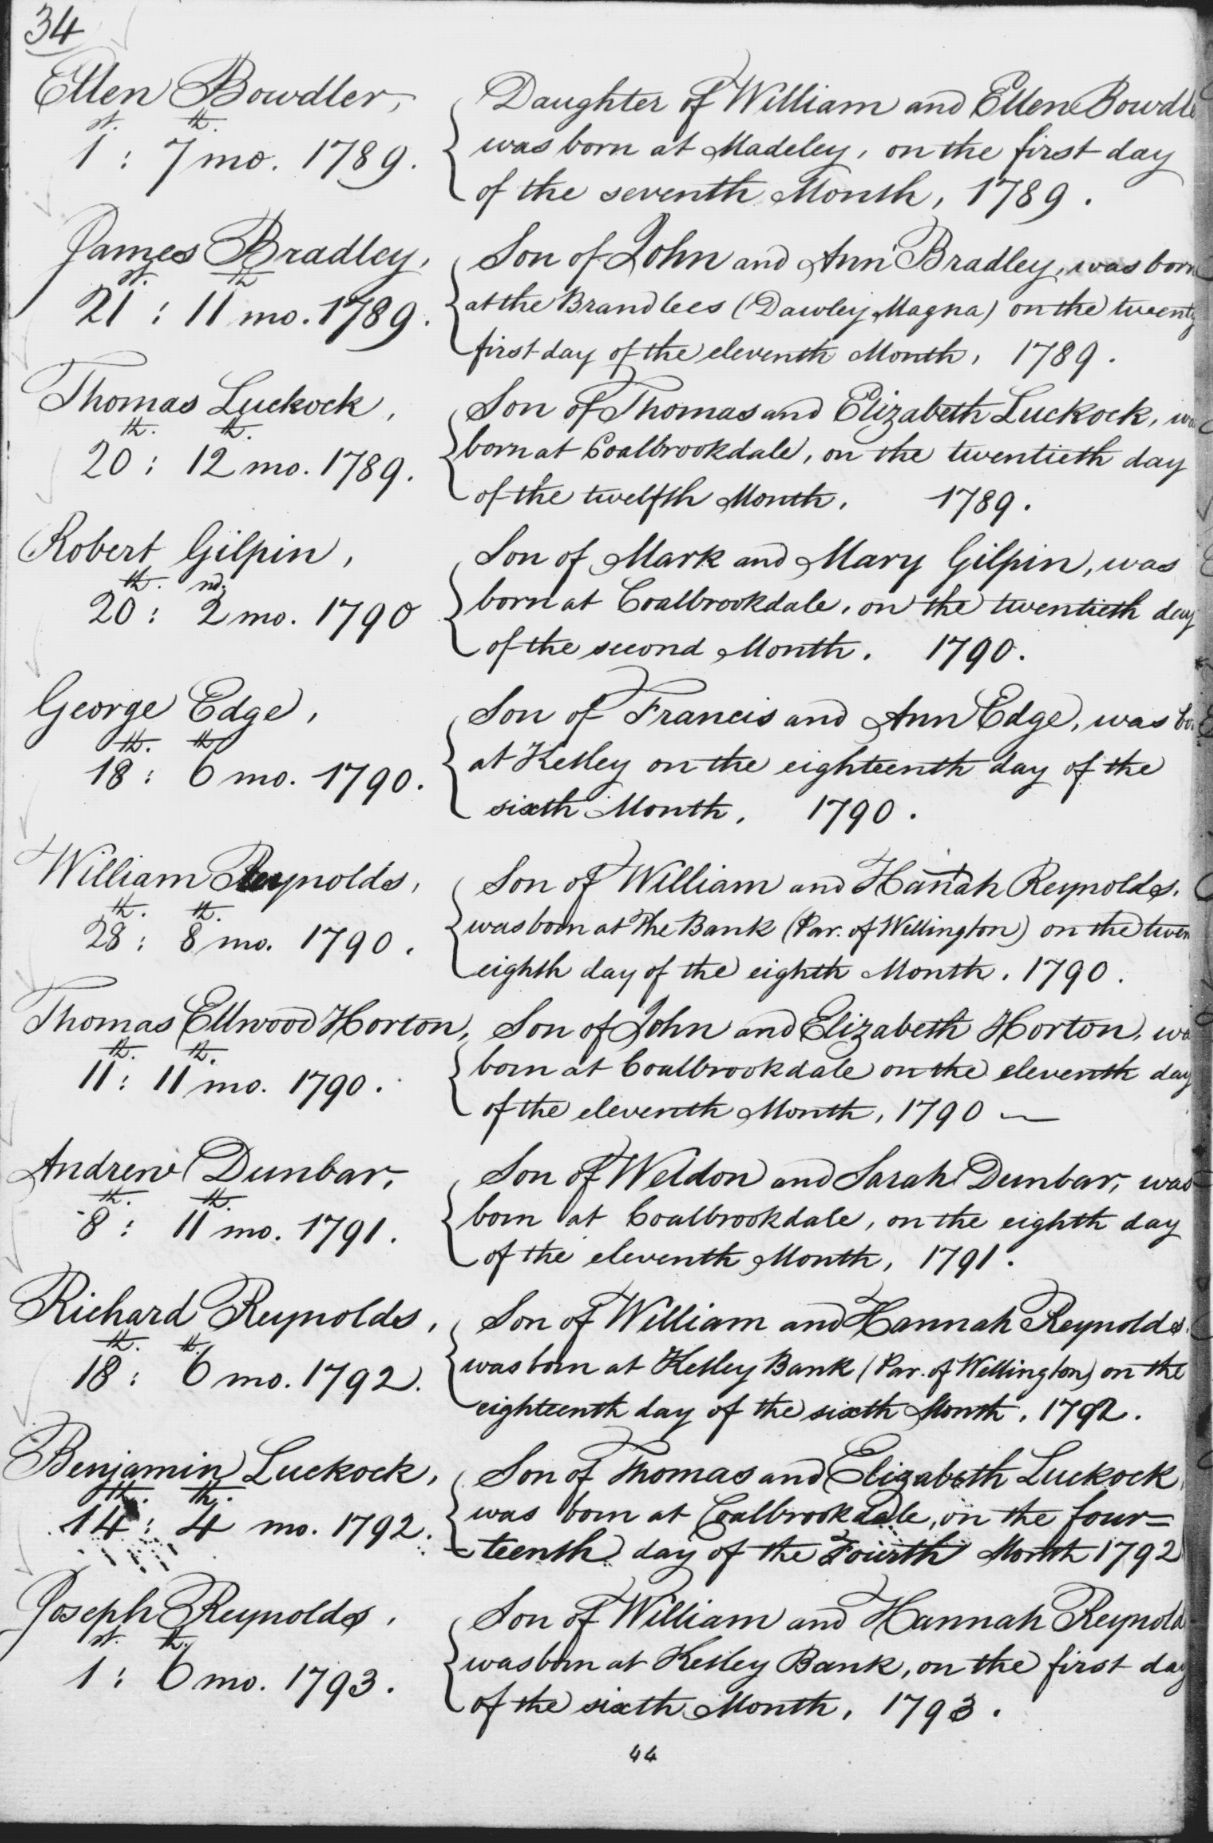 34
Ellen Bowdler,
1st: 7th mo. 1789.
Daughter of William and Ellen Bowdle
was born at Madeley, on the first day
of the seventh Month, 1789.
James Bradley,
21st: 11th mo. 1789.
Son of John and Ann Bradley, was born
at the Brandlees (Dawley Magna) on the twenty
first day of the eleventh Month, 1789.
Thomas Luckock,
20th: 12th mo. 1789.
Son of Thomas and Elizabeth Luckock, wa
born at Coalbrookdale, on the twentieth day
of the twelfth Month. 1789.
Robert Gilpin,
20th: 2nd mo. 1790
Son of Mark and Mary Gilpin, was
born at Coalbrookdale, on the twentieth day
of the second Month. 1790.
George Edge,
18th: 6th mo. 1790.
Son of Francis and Ann Edge, was bo
at Ketley on the eighteenth day of the
sixth Month, 1790.
William Reynolds,
28th: 8th mo. 1790.
Son of William and Hanah Reynolds,
was born at The Bank (Par. of Willington) on the twen
eighth day of the eighth Month. 1790.
Thomas Ellwood Horton,
11th: 11th mo. 1790.
Son of John and Elizabeth Horton, wa
born at Coalbrookdale on the eleventh day
of the eleventh Month, 1790 —
Andrew Dunbar,
8th: 11th mo. 1791.
Son of Weldon and Sarah Dunbar, was
born at Coalbrookdale, on the eighth day
of the eleventh Month, 1791.
Richard Reynolds,
18th: 6th mo. 1792.
Son of William and Hannah Reynolds
was born at Ketley Bank (Par. of Wellington) on the
eighteenth day of the sixth Month, 1792.
Benjamin Luckock,
14th: 4th mo. 1792.
Son of Thomas and Elizabeth Luckock
was born at Coalbrookdale, on the four=
teenth day of the Fourth Month 1792
Joseph Reynolds,
1st: 6th mo. 1793.
Son of William and Hannah Reynold
was born at Ketley Bank, on the first day
of the sixth Month, 1793.
44